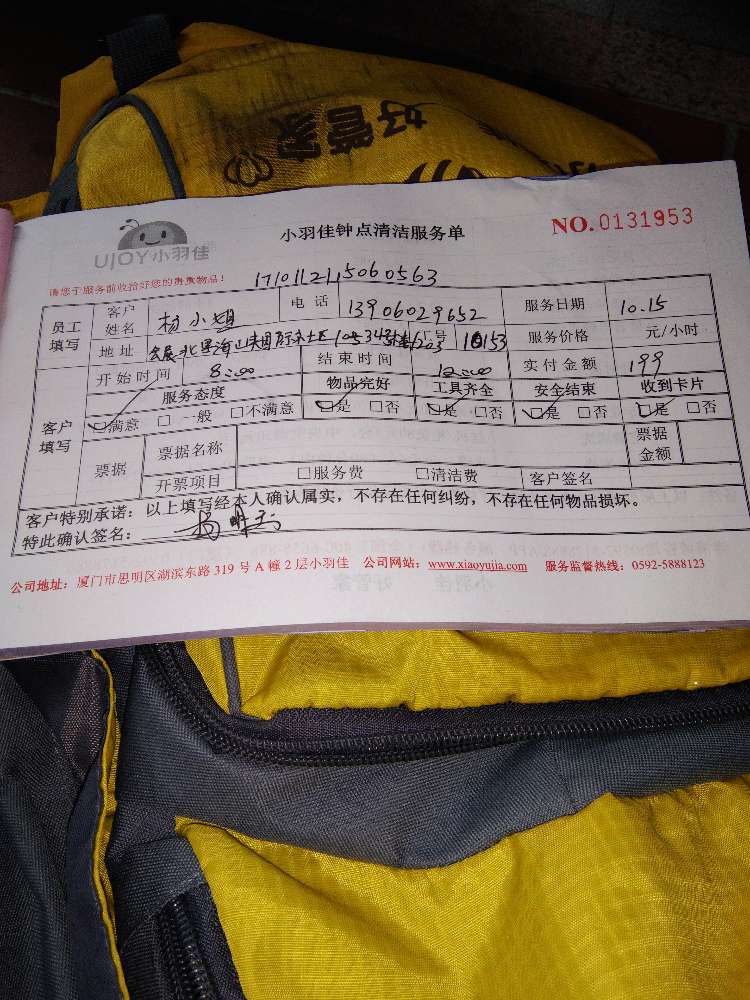 好管家
UJOY小羽佳
小羽佳钟点清洁服务单
NO.0131953
请您于服务前收拾好您的贵重物品!
17101121,15060563
员工填写 客户姓名 杨小姐 电话 13906029652 服务日期 10.15
地址 工号 10153 服务价格 元/小时
客户填写 开始时间 8:00 结束时间 12:00 实付金额 199
服务态度 物品完好 工具齐全 安全结束 收到卡片
☑满意 □一般 □不满意 ☑是 □否 ☑是 □否 ☑是 □否 ☑是 □否
票据 票据名称 票据金额
开票项目 □服务费 □清洁费 客户签名
客户特别承诺:以上填写经本人确认属实,不存在任何纠纷,不存在任何物品损坏。
特此确认签名:
公司地址:厦门市思明区湖滨东路 319 号 A 幢 2 层小羽佳 公司网站:www.xiaoyujia.com 服务监督热线:0592-5888123